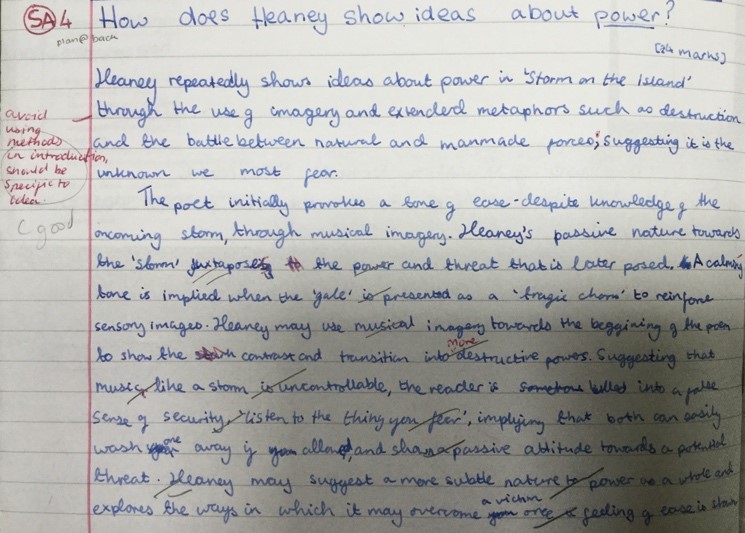 SA 4 How does Heaney show ideas about power?
plan @ back
[24 marks]
Heaney repeatedly shows ideas about power in 'Storm on the Island'
through the use of imagery and extended metaphors such as destruction
and the battle between natural and manmade forces; suggesting it is the
unknown we most fear.
avoid
using
methods
in introduction,
should be
specific to
idea.
good
The poet initially provokes a tone of ease - despite knowledge of the
oncoming storm, through musical imagery. Heaney's passive nature towards
the 'storm' juxtaposes the power and threat that is later posed. A calming
tone is implied when the 'gale' is presented as a 'tragic chorus' to reinforce
sensory images. Heaney may use musical imagery towards the beggining of the poem
to show the contrast and transition into more destructive powers. Suggesting that
music, like a storm is uncontrollable, the reader is somehow lulled into a false
sense of security, 'listen to the thing you fear', implying that both can easily
wash one away if allowed, and share a passive attitude towards a potential
threat. Heaney may suggest a more subtle nature to power as a whole and
explores the ways in which it may overcome a victim once a feeling of ease is